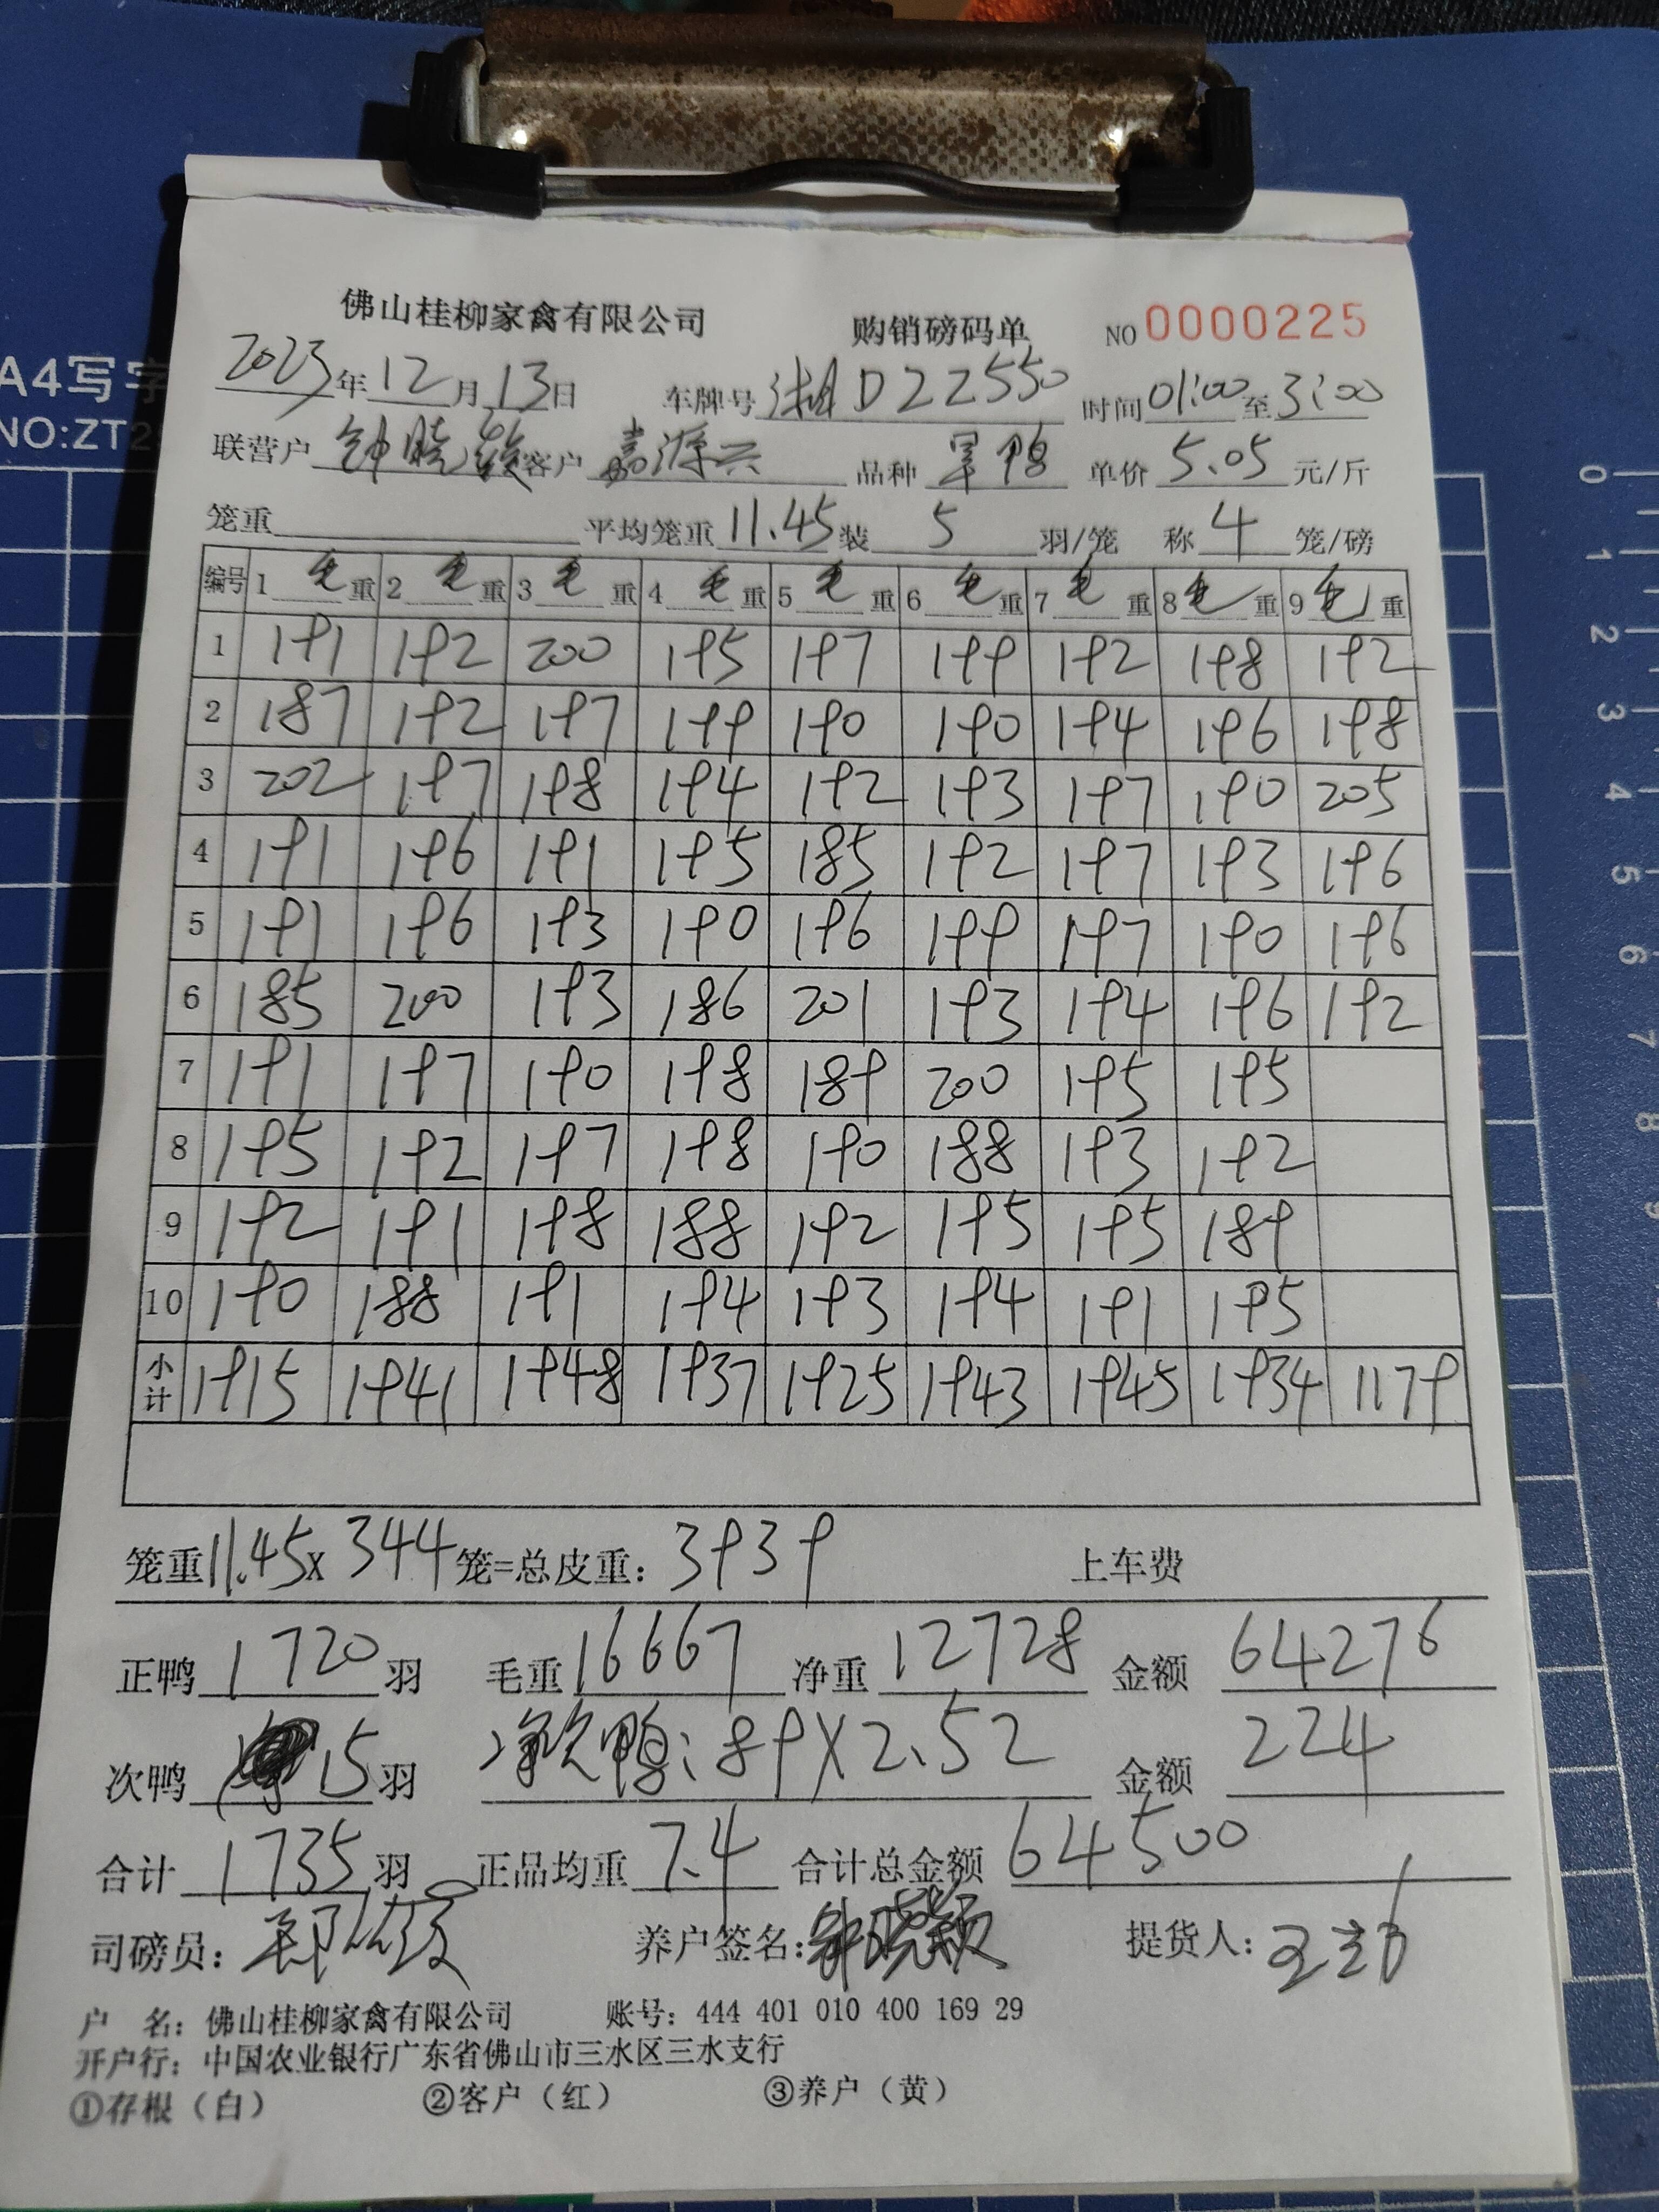 A4写字
NO:ZT2
佛山桂柳家禽有限公司 购销磅码单 NO 0000225
2023年12月13日 车牌号 湘D22550 时间01:00至3:00
联营户 钟晓颖 客户 嘉源兴 品种 旱鸭 单价 5.05 元/斤
笼重 平均笼重 11.45 装 5 羽/笼 称 4 笼/磅
编号 1 毛 重 2 毛 重 3 毛 重 4 毛 重 5 毛 重 6 毛 重 7 毛 重 8 毛 重 9 毛 重
1 191 192 200 195 197 199 192 198 192
2 187 192 197 199 190 190 194 196 198
3 202 197 198 194 192 193 197 190 205
4 191 196 191 195 185 192 197 193 196
5 191 196 193 190 196 199 197 190 196
6 185 200 193 186 201 193 194 196 192
7 191 197 190 198 189 200 195 195
8 195 192 197 198 190 188 193 192
9 192 191 198 188 192 195 195 189
10 190 188 191 194 193 194 191 195
小计 1915 1941 1948 1937 1925 1943 1945 1934 1179
笼重11.45x 344 笼=总皮重: 3939 上车费
正鸭 1720 羽 毛重 16667 净重 12728 金额 64276
次鸭 15 羽 净次鸭: 89X2.52 金额 224
合计 1735 羽 正品均重 7.4 合计总金额 64500
司磅员: 养户签名: 钟晓颖 提货人:
户 名: 佛山桂柳家禽有限公司 账号: 444 401 010 400 169 29
开户行: 中国农业银行广东省佛山市三水区三水支行
①存根(白) ②客户(红) ③养户(黄)
0
1
2
3
4
5
6
7
8
9